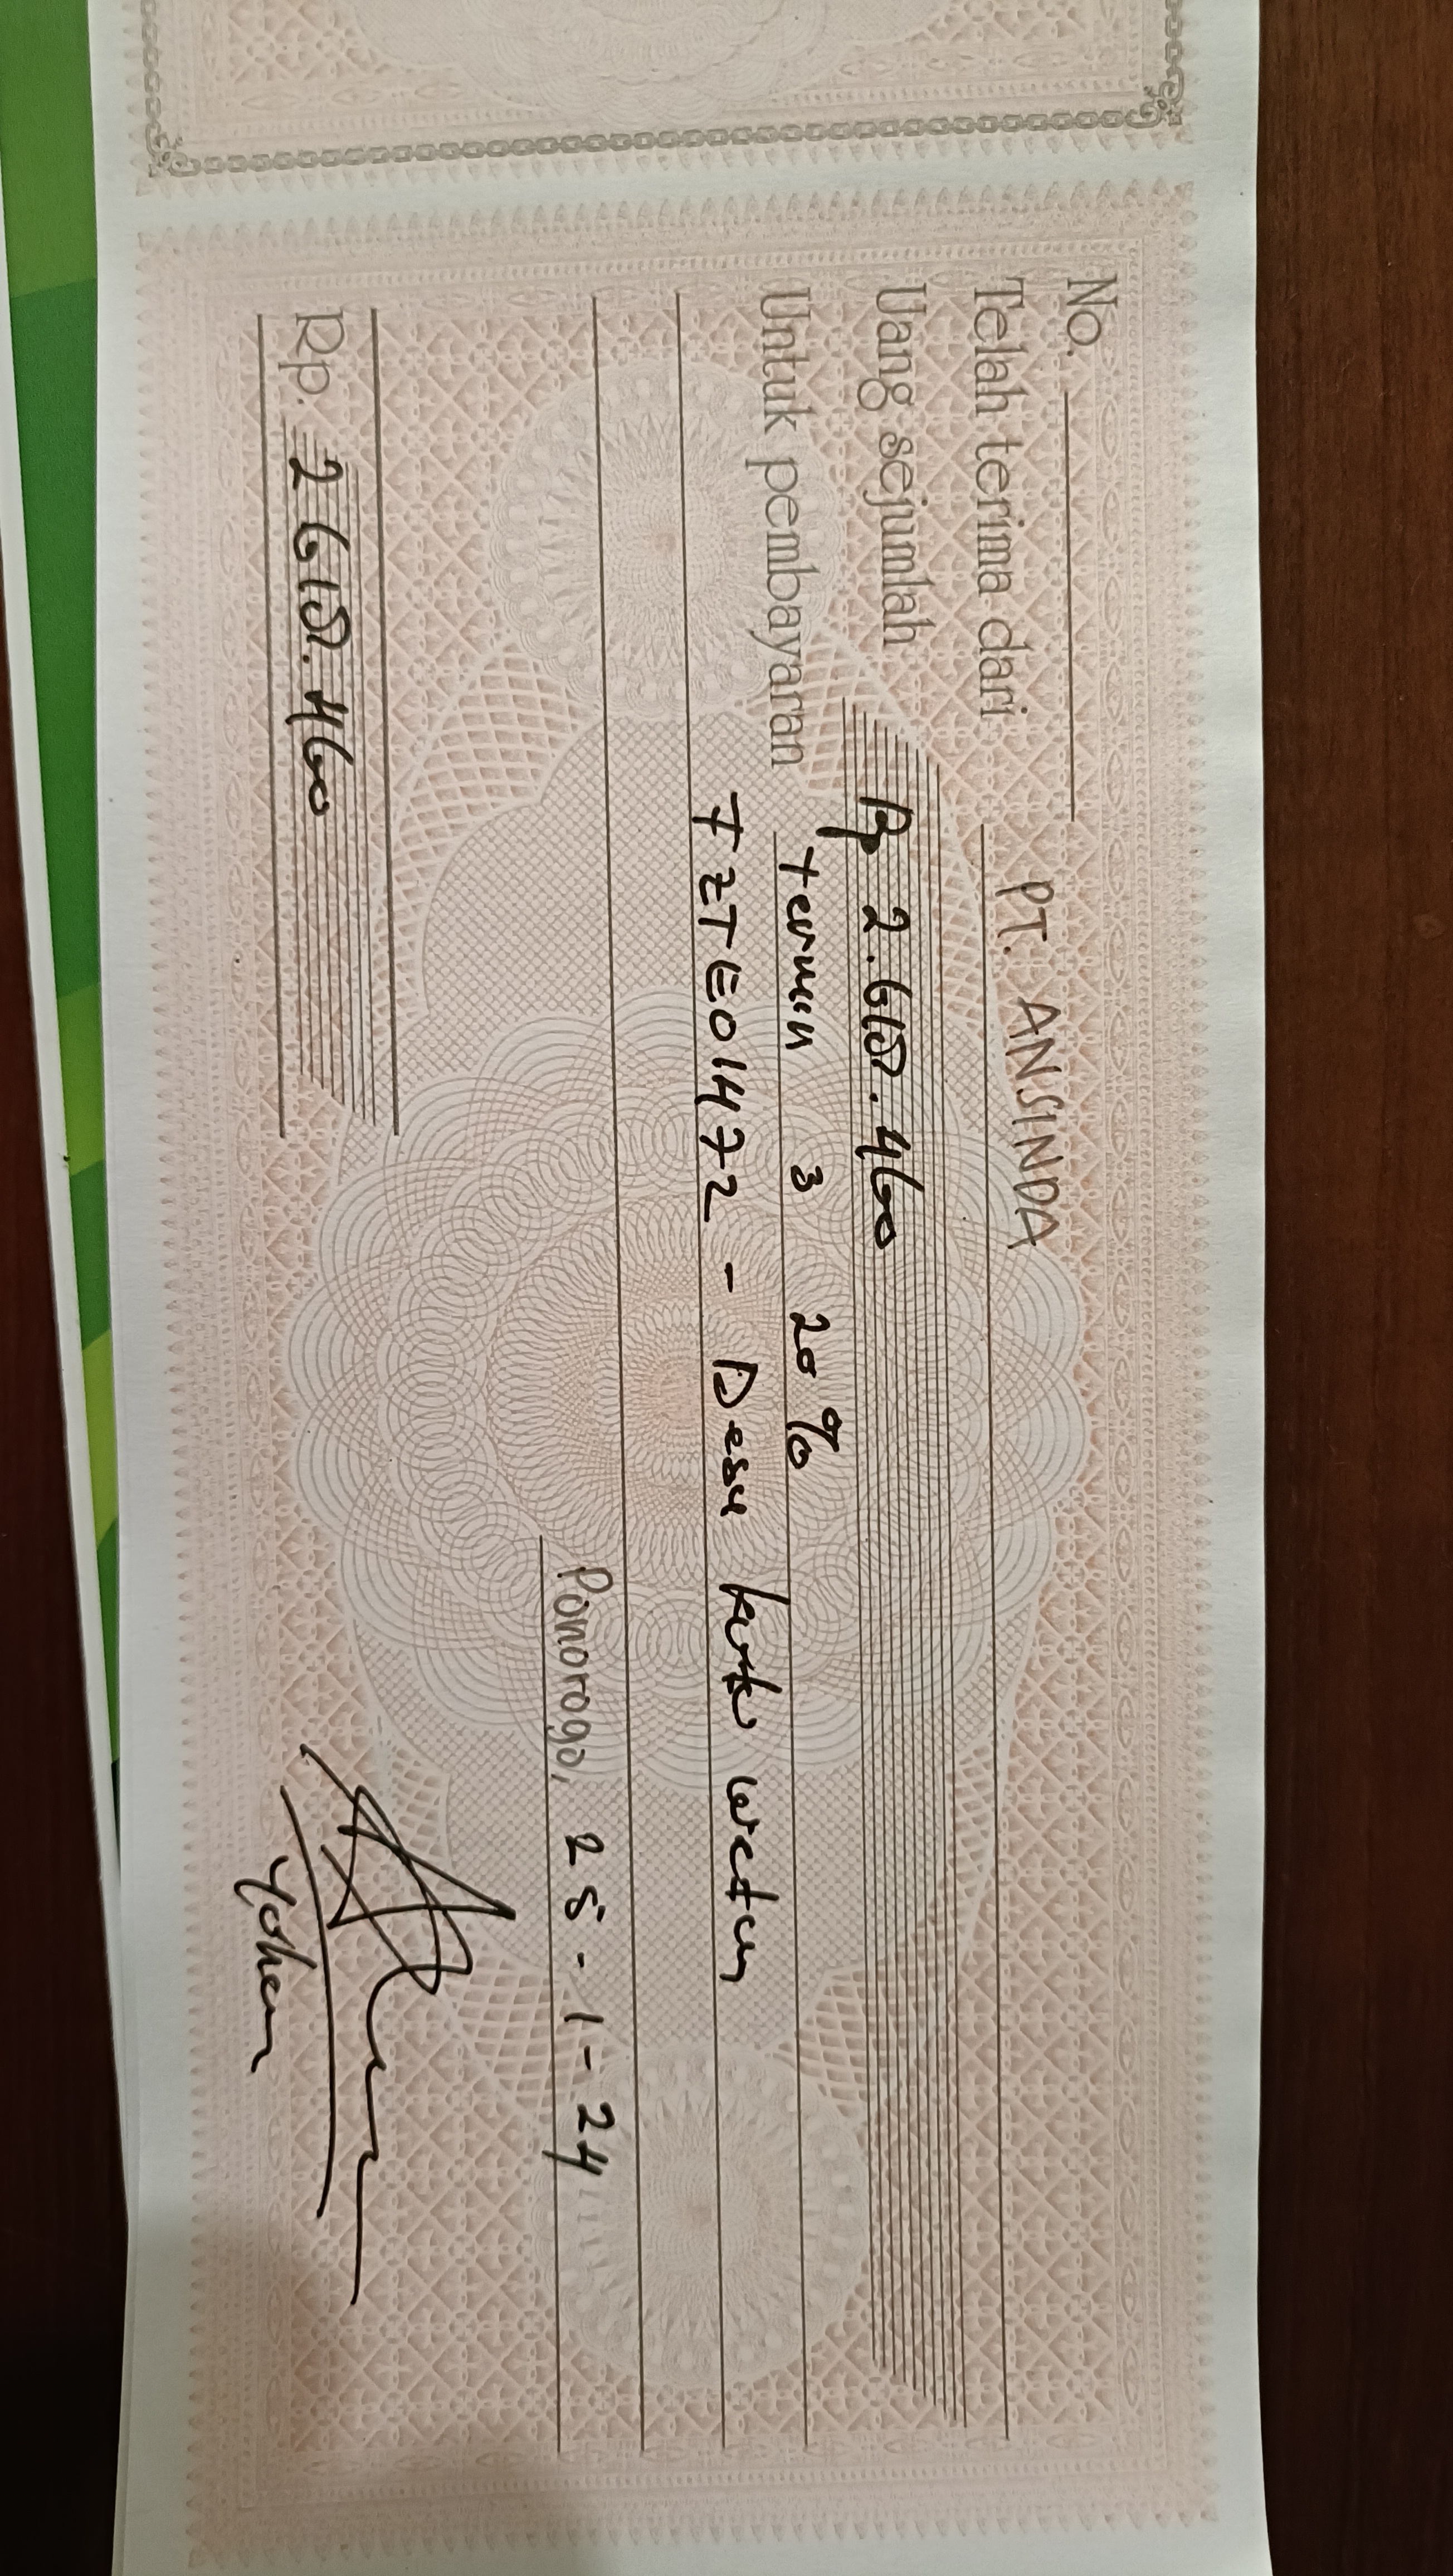 No.
Telah terima dari PT. ANSINDA
Uang sejumlah Rp 2.618.460
Untuk pembayaran termin 3 20%
FZTE01472 - Desa kutu wetan
Ponorogo, 25-1-24
Rp. 2 618.460
Yohan